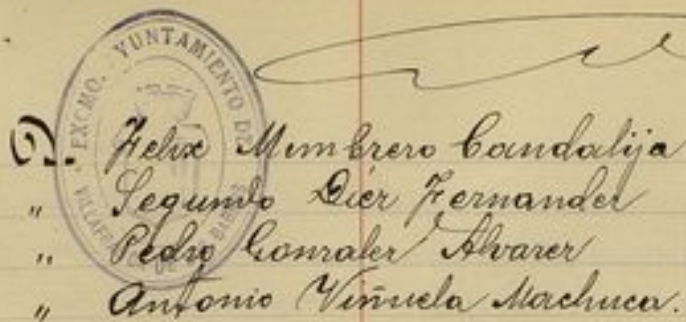 EXCMO. AYUNTAMIENTO DE
VILLAFRANCA DE BARROS
D. Felix Membrero Candalija
" Segundo Diez Fernandez
" Pedro Gonzalez Alvarez
" Antonio Viñuela Machuca.